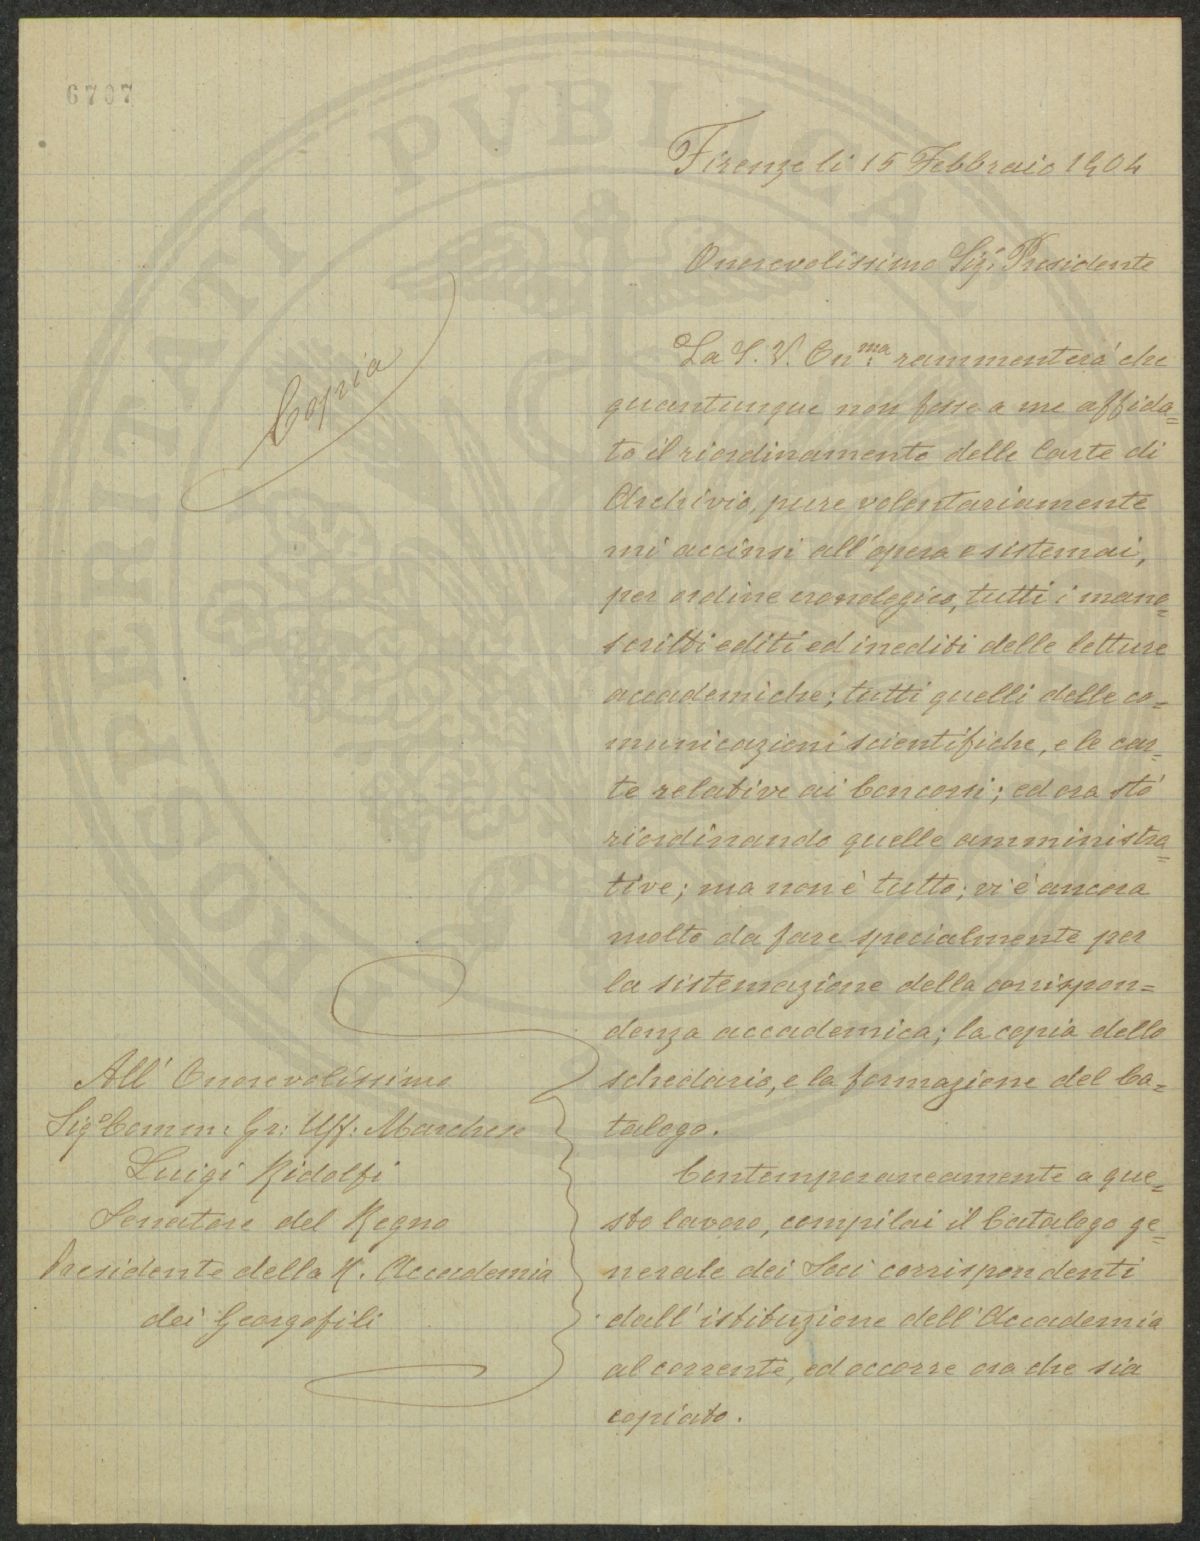 6707
Firenze li 15 Febbraio 1904
Onorevolissimo Sig.r Presidente
Copia
La S. V. On.ma rammenterà che
quantunque non fosse a me affida=
to il riordinamento delle Carte di
Archivio, pure volontariamente
mi accinsi all'opera e sistemai,
per ordine cronologico, tutti i mano=
scritti editi ed inediti delle letture
accademiche; tutti quelli delle co=
municazioni scientifiche, e le car=
te relative ai Concorsi; ed ora stò
riordinando quelle amministra=
tive; ma non è tutto; vi è ancora
molto da fare specialmente per
la sistemazione della corrispon=
denza accademica; la copia dello
schedario, e la formazione del Ca=
talogo.
Contemporaneamente a que=
sto lavoro, compilai il Catalogo ge=
nerale dei Soci corrispondenti
dall'istituzione dell'Accademia
al corrente, ed occorre ora che sia
copiato.
All' Onorevolissimo
Sig.r Comm: Gr: Uff: Marchese
Luigi Ridolfi
Senatore del Regno
Presidente della R. Accademia
dei Georgofili
PROSPERITATI PVBLICAE